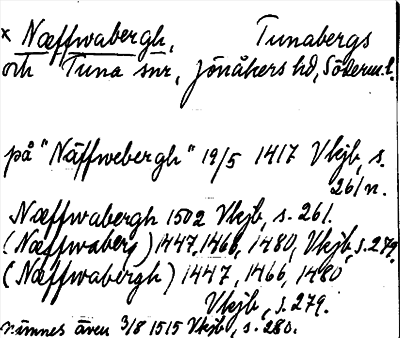 x Næffwabergh, Tunabergs
och Tuna snr, Jönåkers hd, Söderm.l.
på "Näffwebergh" 19/5 1417 Vkjb, s.
261 n.
Næffwabergh 1502 Vkjb, s. 261.
(Næffwaberg) 1447, 1466, 1480, Vkjb, s. 279.
(Næffwabergh) 1447, 1466, 1480
Vkjb, s. 279.
nämnes även 3/8 1515 Vkjb, s. 280.